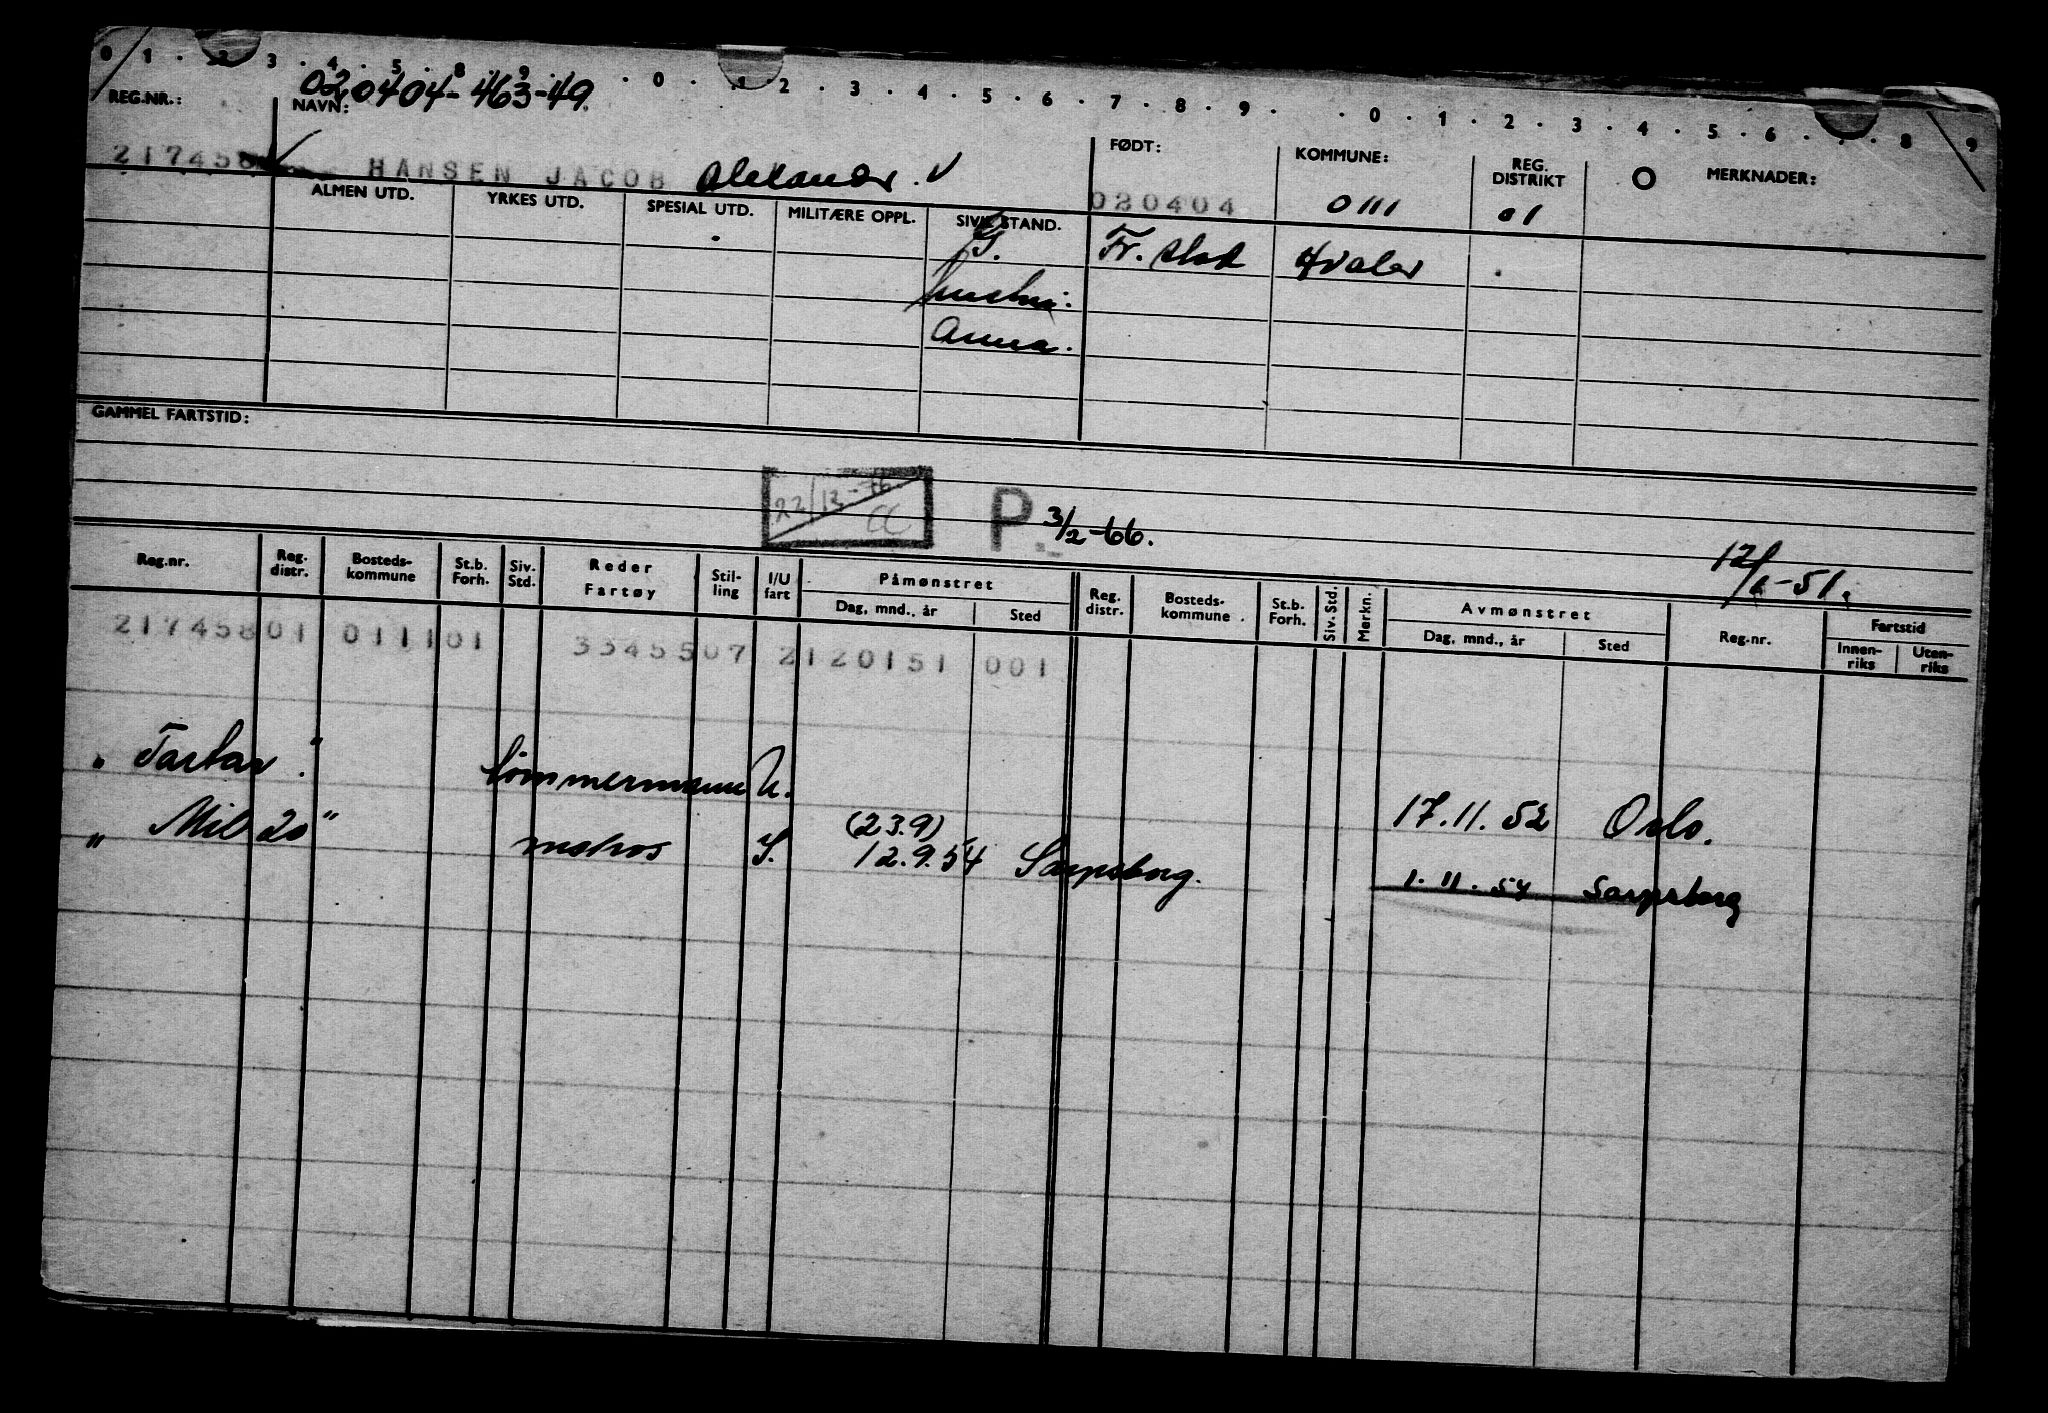 0 1 . 2 3 . 4 . 5 . 8 . 9 . . 0 . 1 2 . 2 . 3 . 4 . 5 . 6 . 7 . 8 . 9 . . 0 . 1 . 2 . 3 . 4 . 5 . 6 . 7 . 8 9
020404-463-49.
REG.NR.: NAVN: FØDT: KOMMUNE: REG. DISTRIKT O MERKNADER:
217458 HANSEN JACOB Alexander. V 020404 0111 01
ALMEN UTD. YRKES UTD. SPESIAL UTD. MILITÆRE OPPL. SIVILSTAND.
G. Fr.stad Hvaler
hustru:
Anna.
GAMMEL FARTSTID:
P. 3/2-66.
-51.
Reg.nr. Reg. distr. Bosteds-kommune St.b. Forh. Siv. Std. Reder Fartøy Stil-ling I/U fart Påmønstret Dag, mnd., år Sted Reg. distr. Bosteds-kommune St.b. Forh. Siv. Std. Merkn. Avmønstret Dag, mnd., år Sted Reg.nr. Fartstid Innen-riks Uten-riks
217458 01 0111 01 33455 07 2 120151 001
"Tartar." tømmermann U. 17.11.52 Oslo.
(23.9)
"Mil 20" matros I. 12.9.54 Sarpsborg. 1.11.54 Sarpsborg